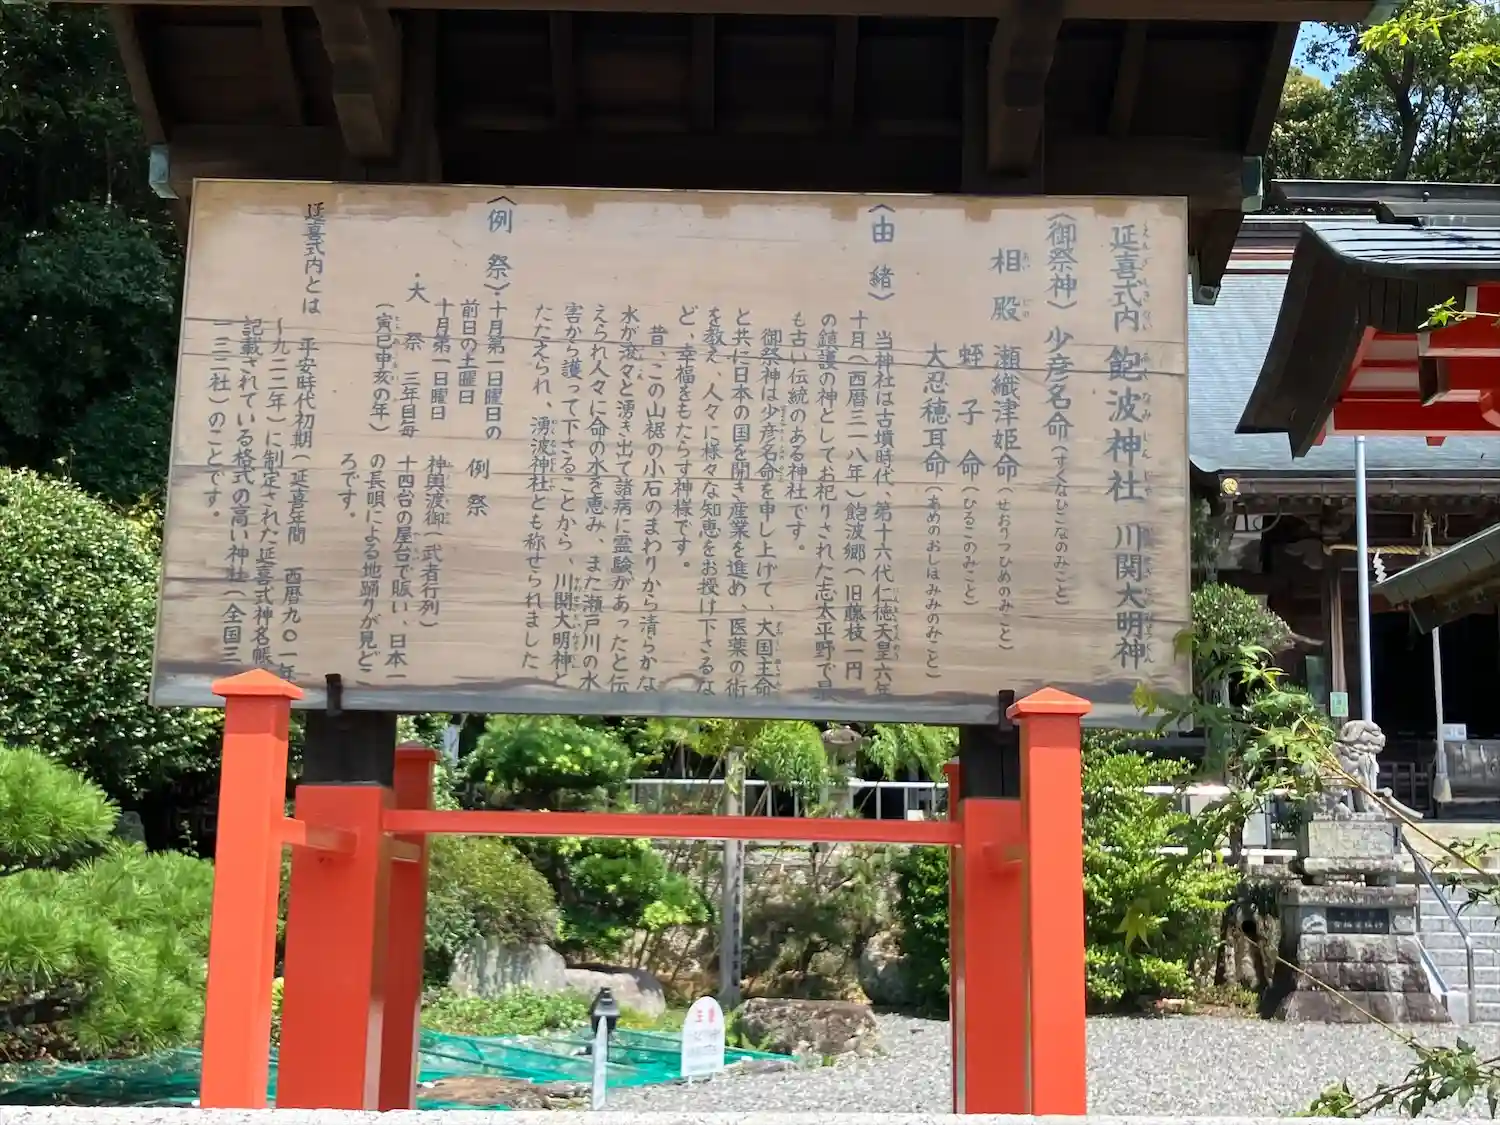 延喜式内 飽波神社 川関大明神
えんぎしきない あくなみじんじゃ
〈御祭神〉 少彦名命(すくなひこなのみこと)
相殿 瀬織津姫命(せおりつひめのみこと)
あいどの
蛭子命(ひるこのみこと)
大忍穂耳命(あめのおしほみみのみこと)
〈由緒〉
当神社は古墳時代、第十六代仁徳天皇六年
十月(西暦三一八年)飽波郷(旧藤枝一円
の鎮護の神としてお祀りされた志太平野で最
も古い伝統のある神社です。
御祭神は少彦名命を申し上げて、大国主命
と共に日本の国を開き産業を進め、医薬の術
を教え、人々に様々な知恵をお授け下さるな
ど、幸福をもたらす神様です。
昔、この山裾の小石のまわりから清らかな
水が滾々と湧き出て諸病に霊験があったと伝
えられ人々に命の水を恵み、また瀬戸川の水
害から護って下さることから、川関大明神と
たたえられ、湧波神社とも称せられました
〈例祭〉・十月第一日曜日の 例祭
前日の土曜日
十月第一日曜日 神輿渡御(武者行列)
・大祭 三年目毎 十四台の屋台で賑い、日本一
(寅巳申亥の年) の長唄による地踊りが見どこ
ろです。
延喜式内とは 平安時代初期(延喜年間 西暦九〇一年
〜九二二年)に制定された延喜式神名帳
記載されている格式の高い神社(全国三
一三二社)のことです。
注意